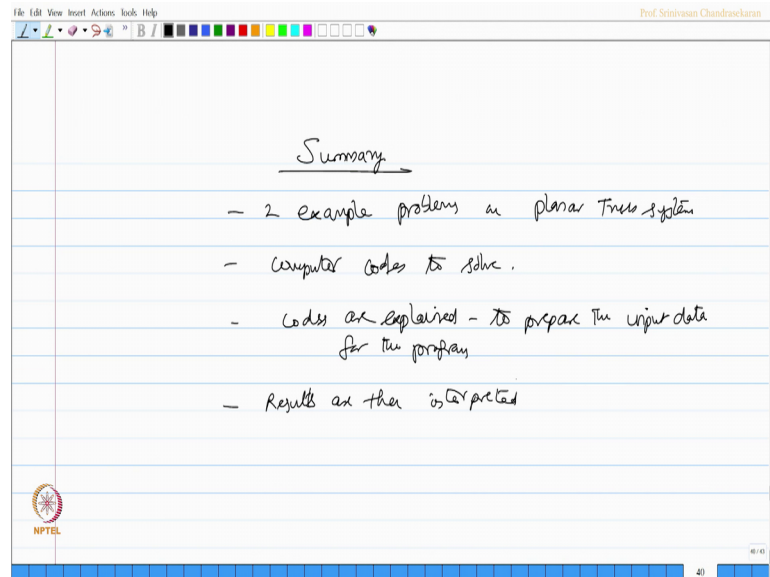 File Edit View Insert Actions Tools Help
Prof. Srinivasan Chandrasekaran
B I
Summary
- 2 example problems on planar Truss system
- computer codes to solve.
- codes are explained - to prepare the input data
for the program
- Results are then interpreted
NPTEL
40 / 43
40